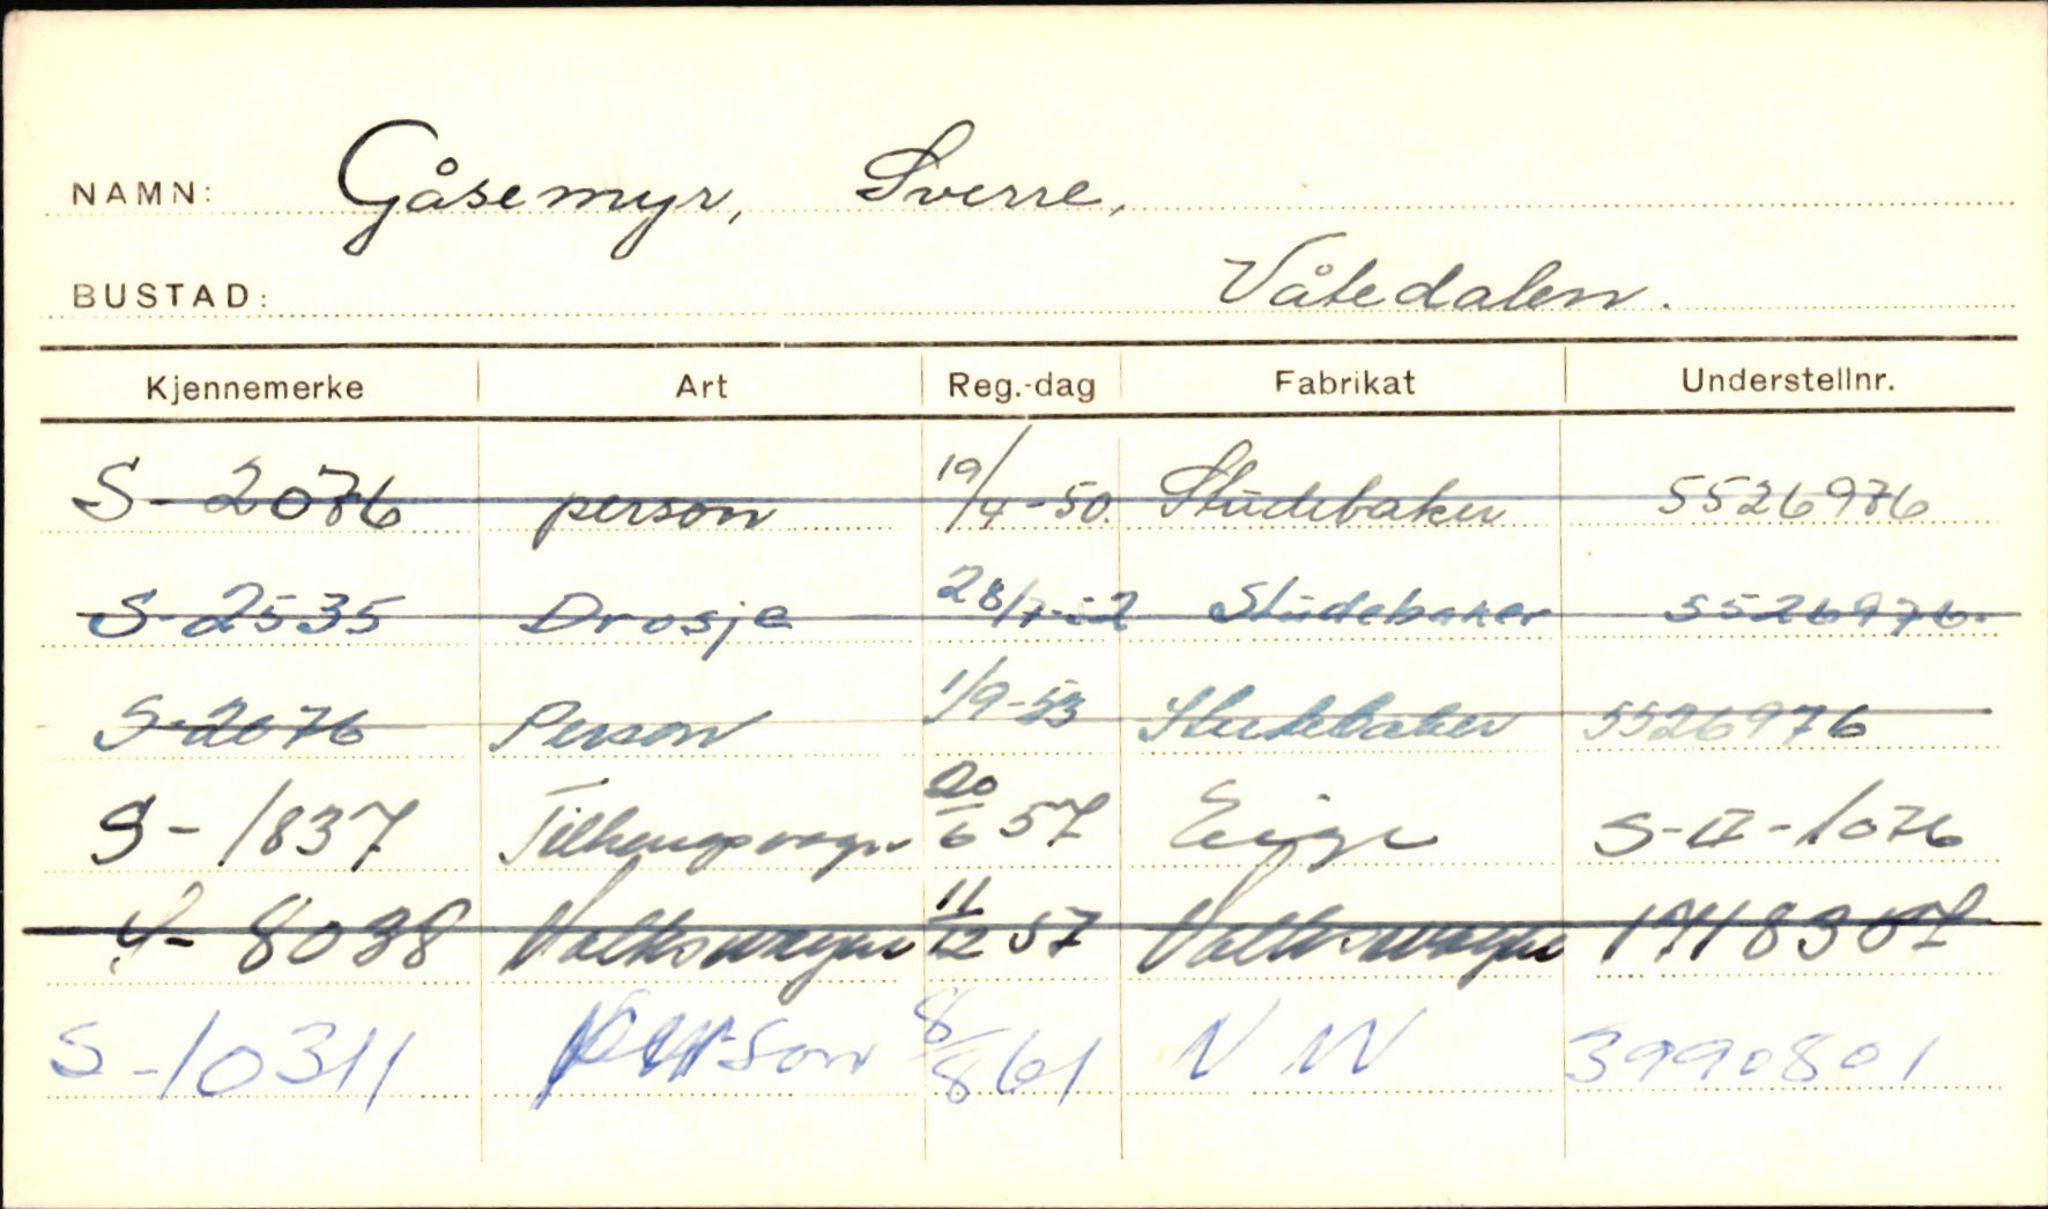 NAMN: Gåsemyr, Sverre,
BUSTAD: Våtedalen.
Kjennemerke Art Reg.-dag Fabrikat Understellnr.
S-2076 person 19/4-50. Studebaker 5526976
S-2535 Drosje 28/7-52 Studebaker 5526976.
S-2076 Person 1/9-53 Studebaker 5526976
S-1837 Tilhengervogn 20/6 57 Eige S-II-1076
S-8038 Volkswagen 11/12 57 Volkswagen
S-10311 person 8/8 61 3990801